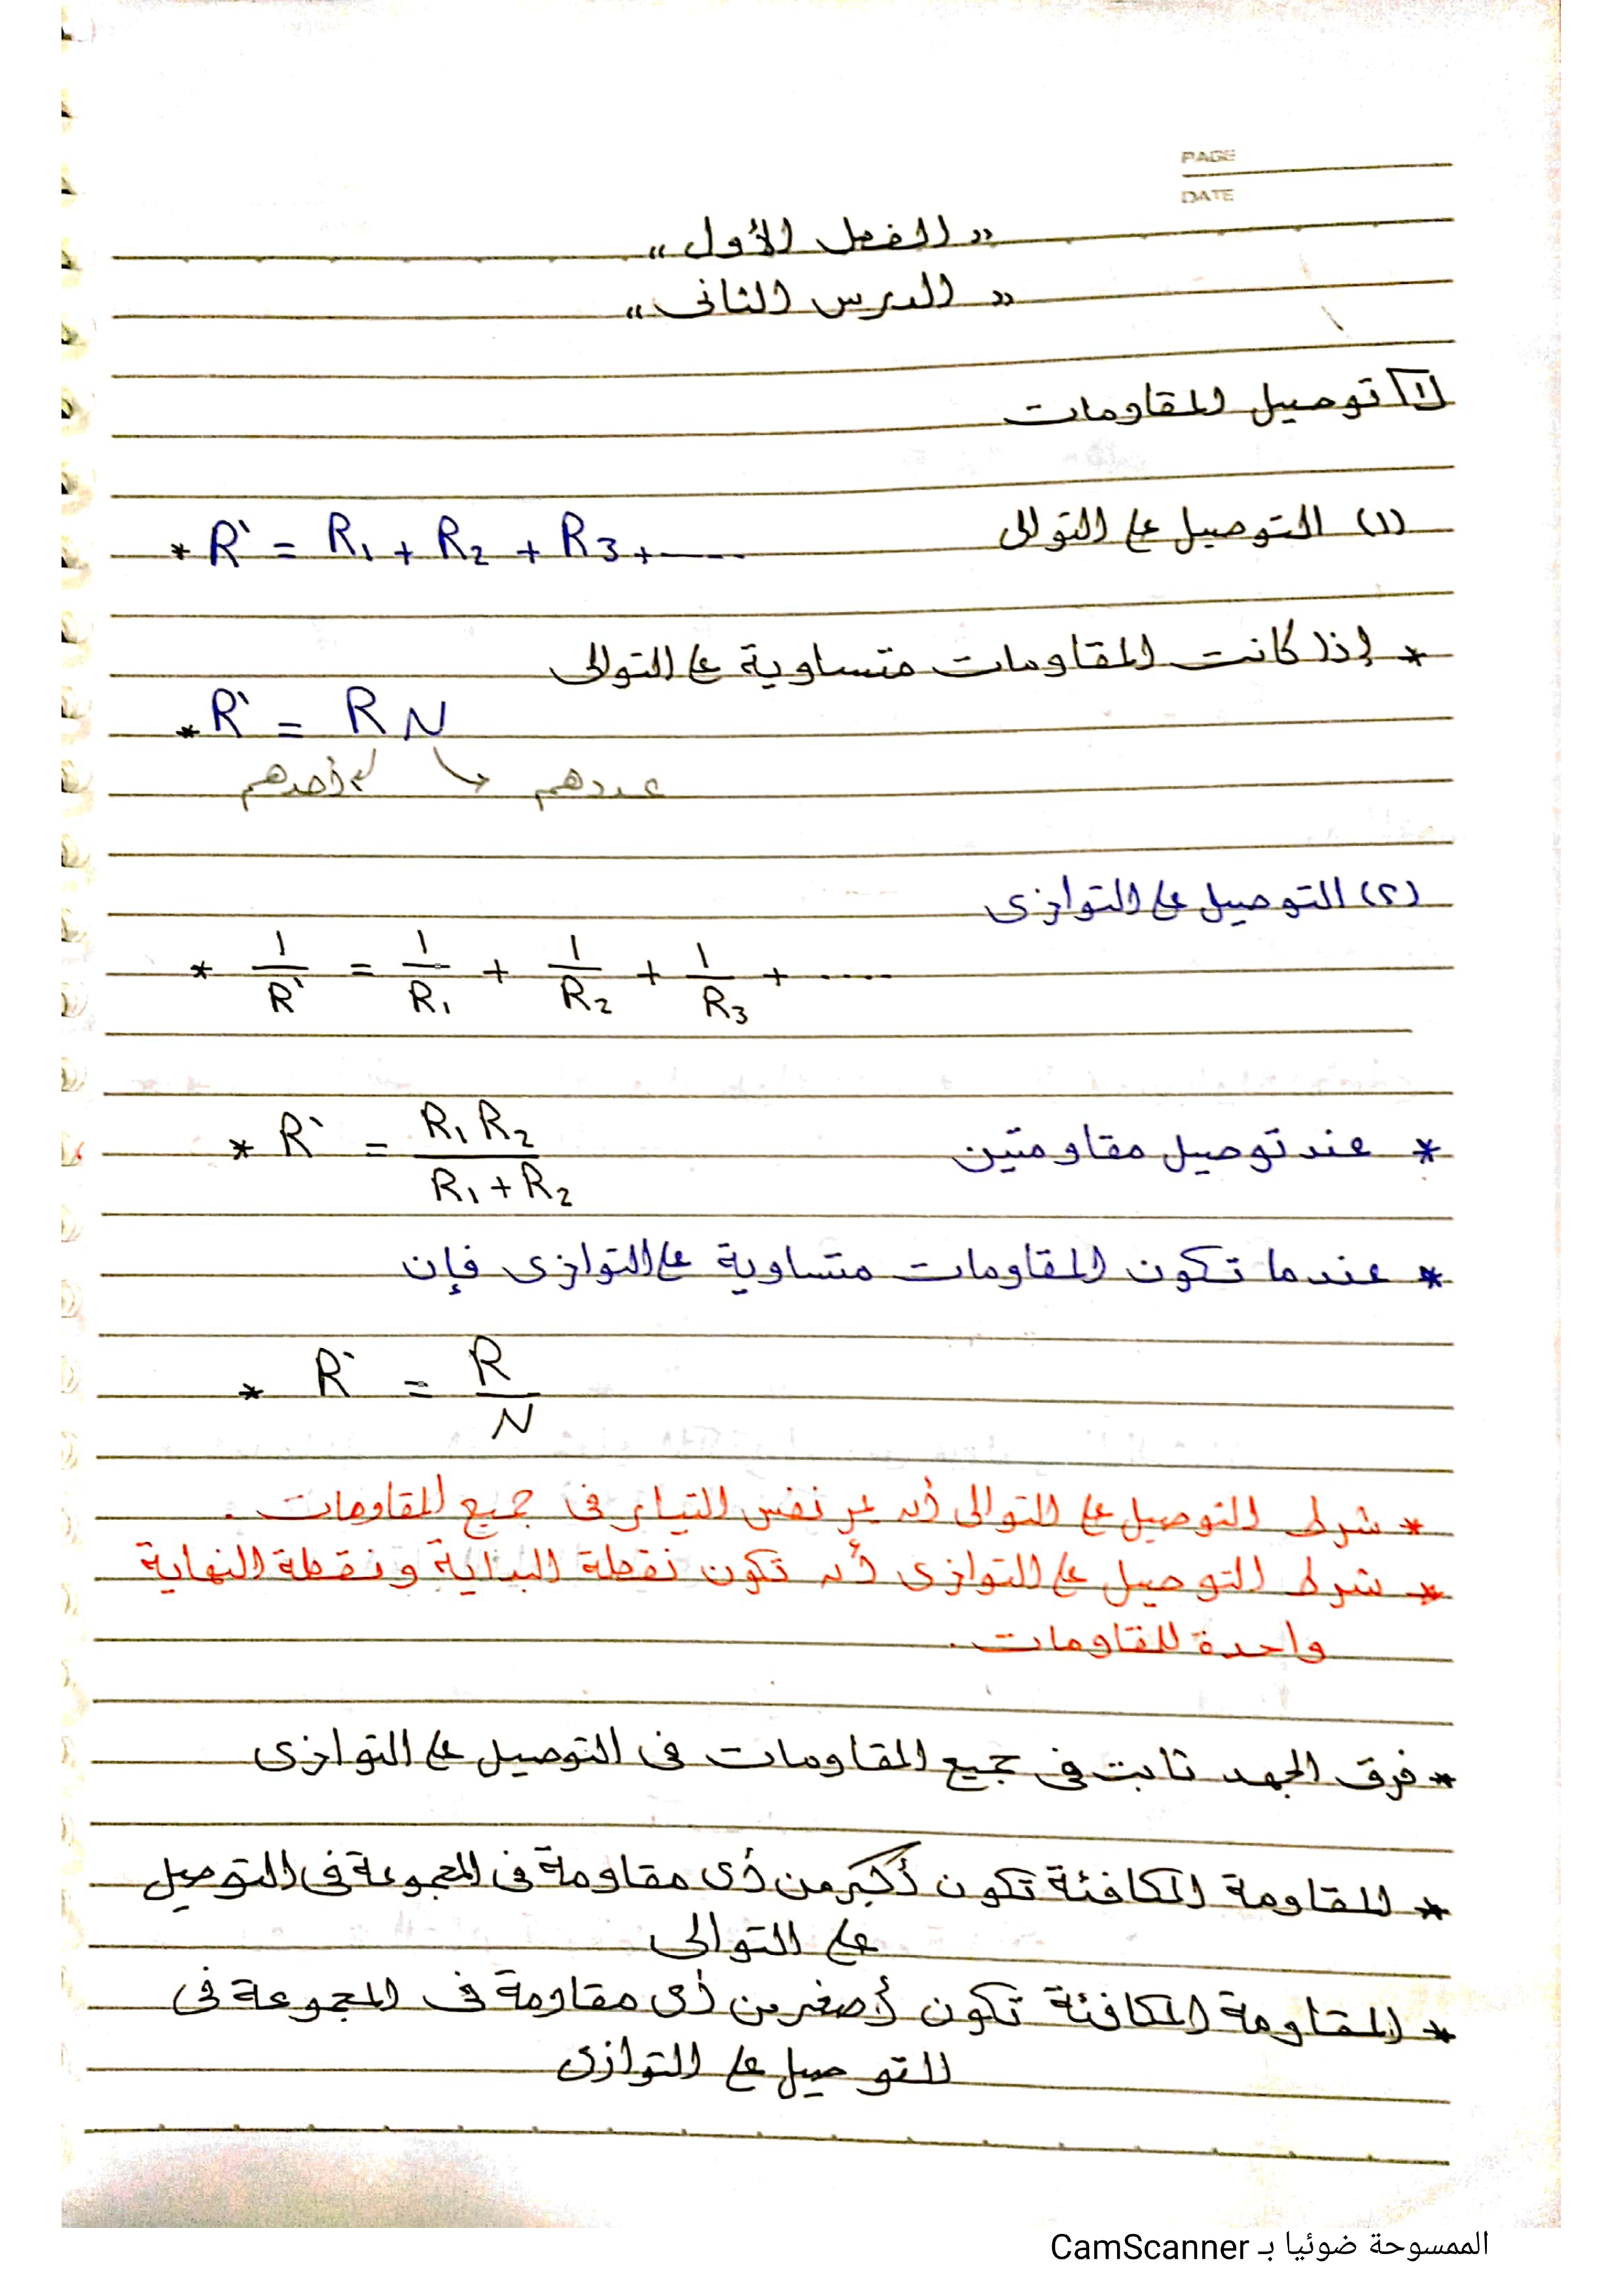 PAGE
DATE
" الفصل الأول "
" الدرس الثانى "
1 توصيل المقاومات
(١) التوصيل على التوالى
* R` = R1 + R2 + R3 + ----
* إذا كانت المقاومات متساوية على التوالى
* R` = R N
أحدهم عددهم
(٢) التوصيل على التوازى
* 1/R` = 1/R1 + 1/R2 + 1/R3 + ....
* عند توصيل مقاومتين
* R` = R1 R2 / R1 + R2
* عندما تكون المقاومات متساوية على التوازى فإن
* R` = R / N
* شرط التوصيل على التوالى أن يمر نفس التيار فى جميع المقاومات .
* شرط التوصيل على التوازى أن تكون نقطة البداية ونقطة النهاية
واحدة للمقاومات .
* فرق الجهد ثابت فى جميع المقاومات فى التوصيل على التوازى
* المقاومة المكافئة تكون أكبر من أى مقاومة فى المجموعة فى التوصيل
على التوالى
* المقاومة المكافئة تكون أصغر من أى مقاومة فى المجموعة فى
التوصيل على التوازى
الممسوحة ضوئيا بـ CamScanner